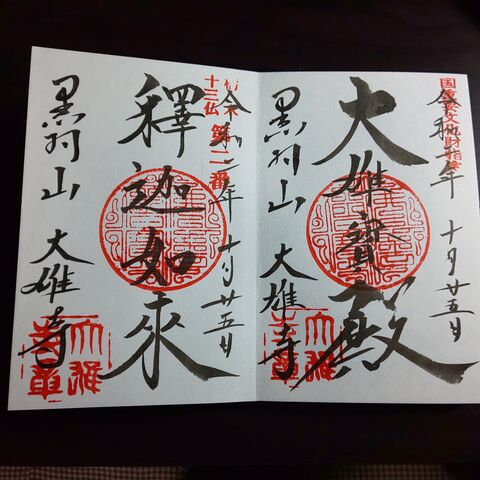 国重要文化財指定
令和二年 十月廿五日
大雄寶殿
黒羽山 大雄寺
十三仏 第二番
令和二年 十月廿五日
釋迦如来
黒羽山 大雄寺